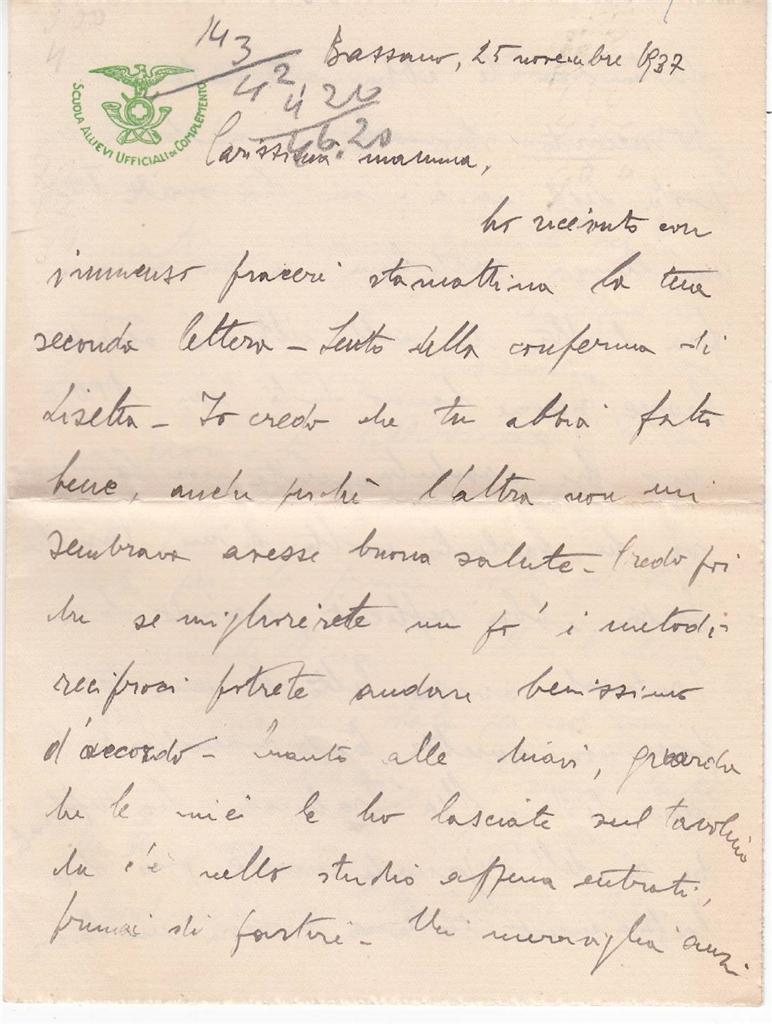 SCUOLA ALLIEVI UFFICIALI DI COMPLEMENTO
14
3
42
4 20
46.20
Bassano, 25 novembre 1937
Carissima mamma,
ho ricevuto con
immenso piacere stamattina la tua
seconda lettera - Sento della conferma di
Lisetta - Io credo che tu abbia fatto
bene, anche perchè l'altra non mi
sembrava avesse buona salute - Credo poi
che se migliorerete un po' i metodi
reciproci potrete andare benissimo
d'accordo - Quanto alle chiavi, guarda
che le mie le ho lasciate sul tavolino
che c'è nello studio appena entrati,
prima di partire - Mi meraviglia anzi